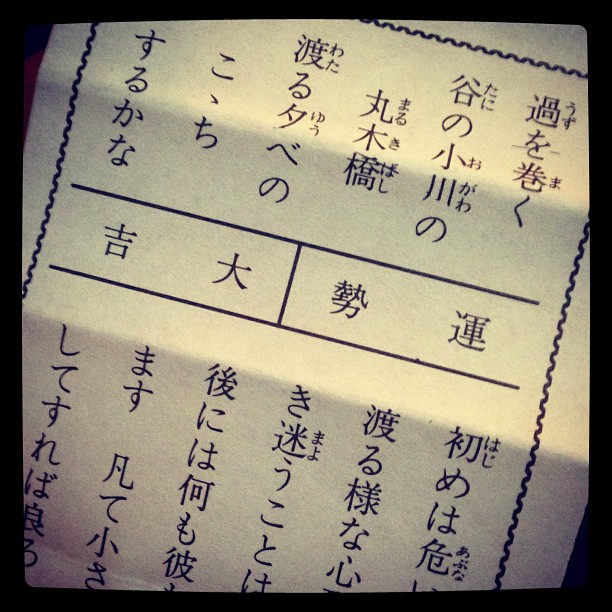 過を巻く
谷の小川の
丸木橋
渡る夕べの
こゝち
するかな
運勢
大吉
初めは危
渡る様な心
き迷うことは
後には何も彼も
ます 凡て小さ
してすれば良ろ